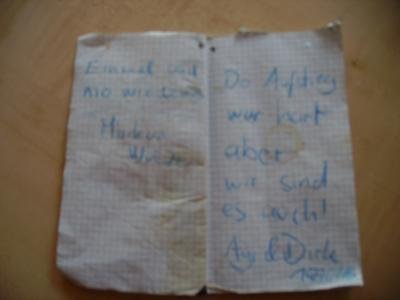 Einmal und
nie wieder
Markus
Do Aufstieg
war hart
aber
wir sind
es auch!
& Dirk